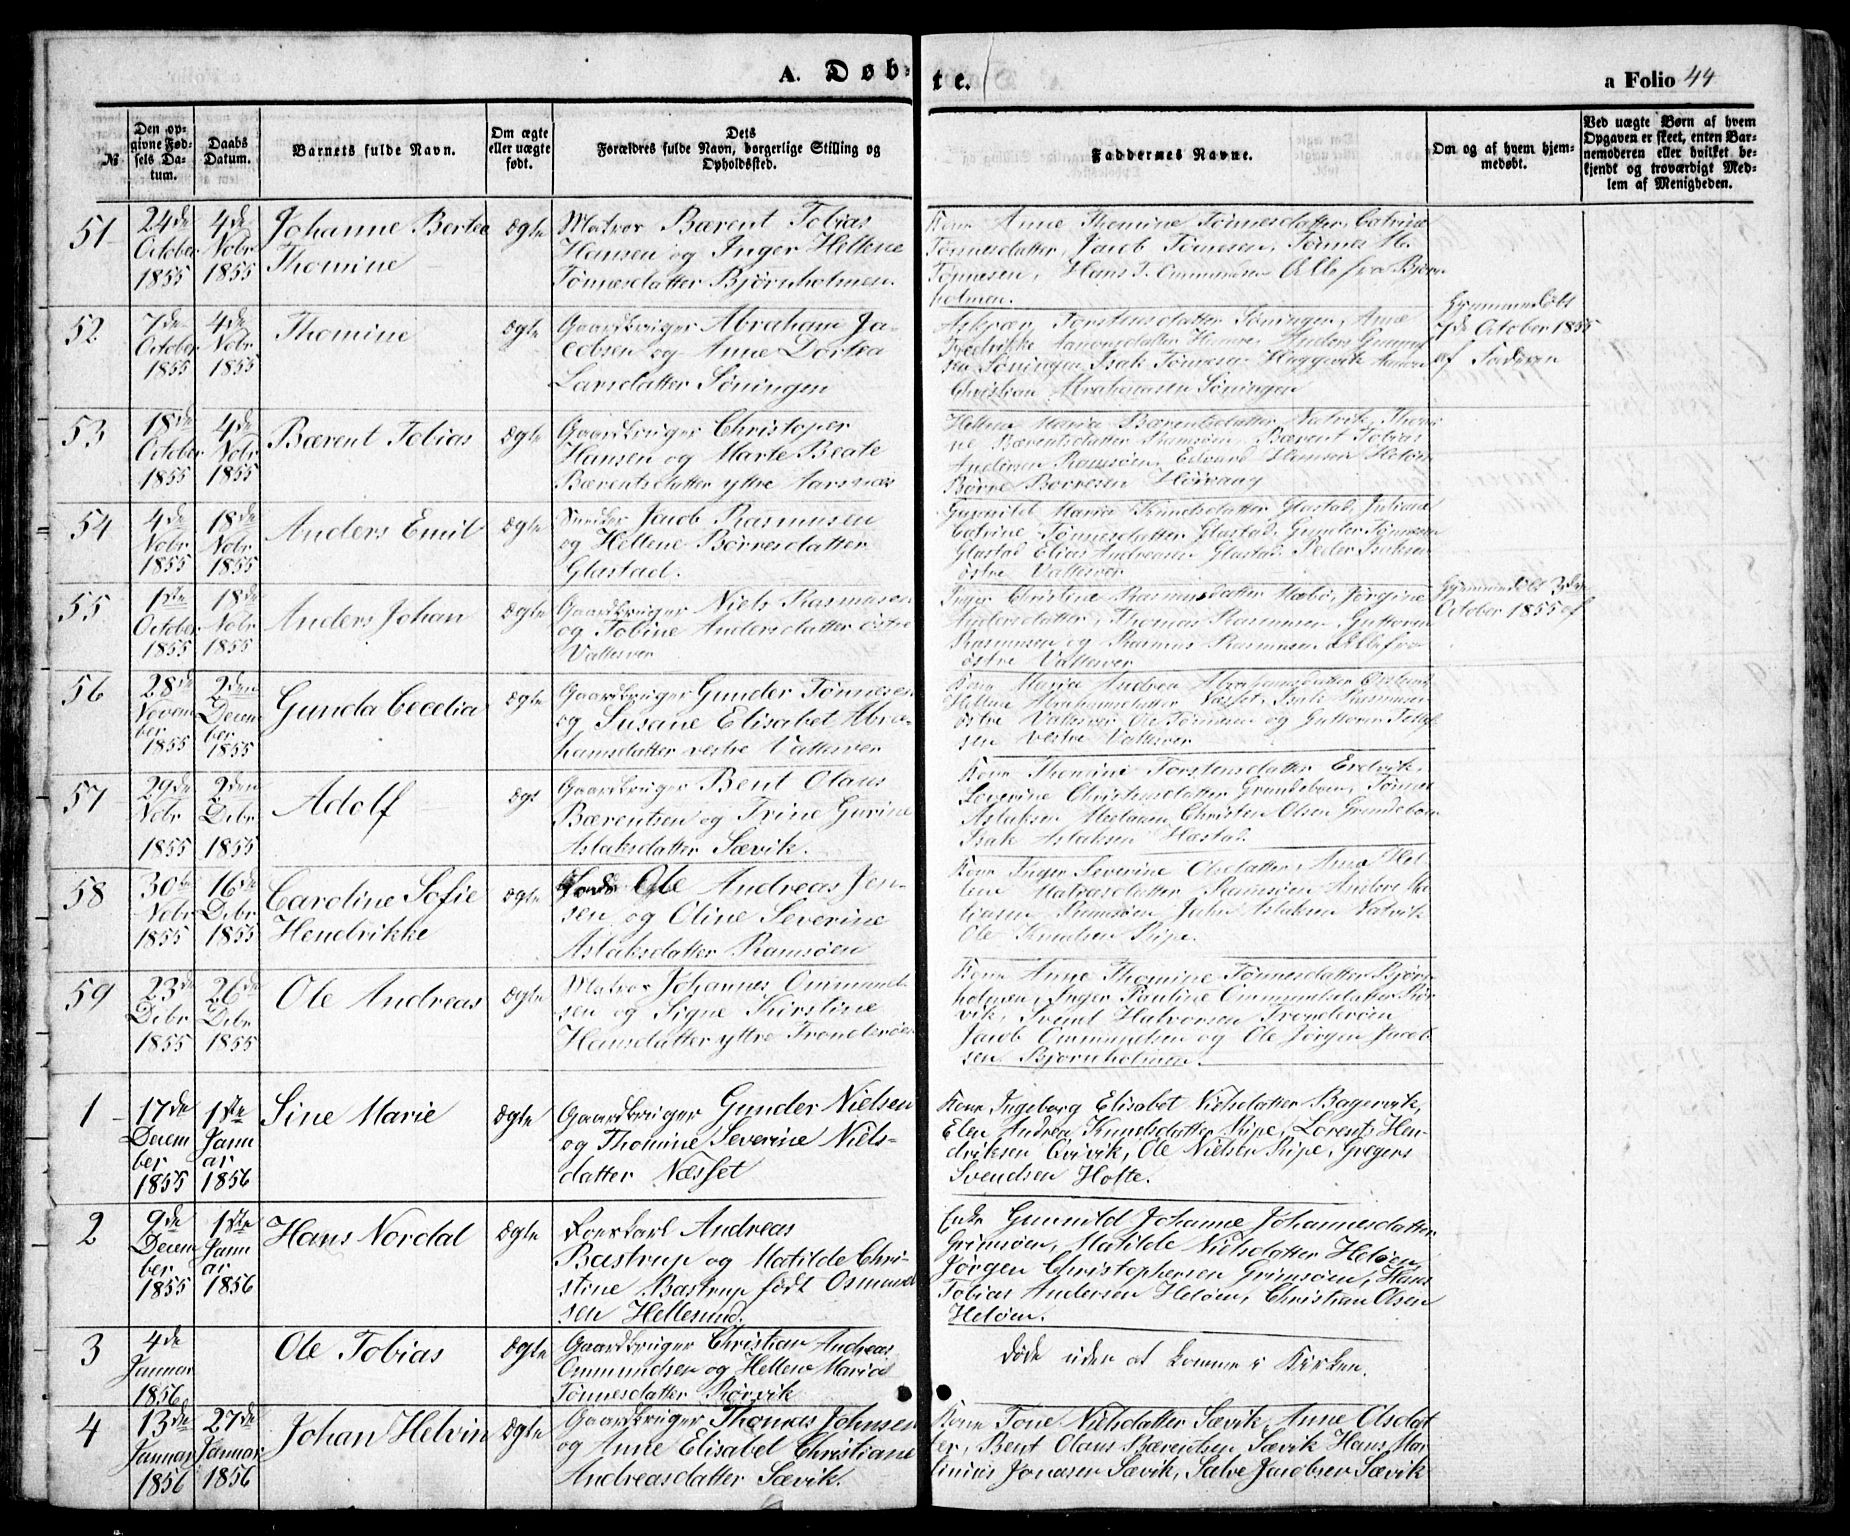 A. Døb-
te.
a Folio 44
№
Den op-
givne Fød-
sels Da-
tum.
Daabs
Datum.
Barnets fulde Navn.
Om ægte
eller uægte
født.
Dets
Forældres fulde Navn, borgerlige Stilling og
Opholdssted.
Faddernes Navne.
Om og af hvem hjem-
medøbt.
Ved uægte Børn af hvem
Opgaven er skeet, enten Bar-
nemoderen eller hvilket be-
kjendt og troværdigt Med-
lem af Menigheden.
51
24de
October
1855
4de
Nobr
1855
Johanne Bertea
Thomine
Ægte
Matros Bærent Tobias
Hansen og Inger Hellene
Tønnesdatter Bjørnholmen.
Kone Anne Thomine Tønnesdatter, Catrine
Tønnesdatter, Jacob Tønnesen, Tønnes
Tønnesen, Hans T. Ommundsen Alle fra Bjørn
holmen.
52
7de
October
1855
4de
Nobr
1855
Thomine
Ægte
Gaardbruger Abraham Ja-
cobsen og Anne Dortea
Larsdatter Søningen
Torstensdatter Søningen, Anne
Fredrikke
Søningen, Isak Tønnesen
Christian Abrahamsen Søningen
Hjemmedøbt
7de October 1855
af Faderen
53
18de
October
1855
4de
Nobr
1855
Bærent Tobias
Ægte
Gaardbruger Christoper
Hansen og Marte Beate
Bærentsdatter yttre Aarsnæs
Hellene Maria Bærentsdatter Natvik, Thomi
ne Bærentsdatter Ramsøen, Bærent Tobias
Andersen Ramsøen, Edvard Hansen Heløen
Børre Børresen Høivaag
54
4de
Nobr
1855
18de
Nobr
1855
Anders Emil
Ægte
Jacob Rasmusen
og Hellene Børresdatter
Glastad.
Gunnild Maria Knudsdatter Glastad, Juliane
Catrine Tønnesdatter Glastad, Gunder Tønnesen
Glastad Elias Andreasen Glastad Peder Isaksen
østre Vallesver
55
1ste
October
1855
18de
Nobr
1855
Anders Johan
Ægte
Gaardbruger Niels Rasmusen
og Tobine Andersdatter østre
Vallesver
Inger Christine Rasmusdatter Mæbø, Jørgine
Andersdatter, Thomas Rasmusen, Guttorm
Rasmusen og Rasmus Rasmusen Alle fra
østre Vallesver
Hjemmedøbt 3die
October 1855 af
56
28de
Novem
ber
1855
2den
Decem
ber
1855
Gunda Cecelia
Ægte
Gaardbruger Gunder Tønnesen
og Susane Elisabet Abra-
hamsdatter vestre Vallesver
Kone Maria Andrea Abrahamsdatter
Hellene Abrahamsdatter Væsset, Isak Rasmusen
østre Vallesver Ole Tønnesen og Guttorm
sen vestre Vallesver
57
29de
Nobr
1855
2den
Debr
1855
Adolf
Ægt
Gaardbruger Bent Olaus
Bærentsen og Trine Gurine
Aslaksdatter Sævik.
Kone Thomine Torstensdatter Eredvik,
Severine Christensdatter Grundebom, Tønnes
Aslaksen, Christen Olsen Grundebom
Isak Aslaksen Hæstad
58
30te
Nobr
1855
16de
Debr
1855
Caroline Sofie
Hendrikke
Ægte
Ole Andreas Jen-
sen og Oline Severine
Aslaksdatter Ramsøen
Kone Inger Severine Olsdatter, Anne Hel-
lene Ramsøen Anders
Ramsøen John Aslaksen Natvik
Ole Knudsen Ripe.
59
23de
Debr
1855
26de
Debr
1855
Ole Andreas
Ægte
Matros Johannes Ommund-
sen og Signe Kirstine
Hansdatter yttre Tronderøen
Kone Anne Thomine Tønnesdatter Bjørn
holmen, Inger Pauline Ommundsdatter Rør
vik, Svend Halvorsen Tronderøen
Jacob Ommundsen og Ole Jørgen Jacob
sen Bjørnholmen.
1
17de
Decem
ber
1855
1ste
Janu
ar
1856
Sine Marie
Ægte
Gaardbruger Gunder Nielsen
og Thomine Severine Niels-
datter Næsset
Kone Ingeborg Elisabet Nielsdatter Bagervik,
Elen Andrea Knudsdatter Ripe, Lorents Hen-
driksen Qvivik, Ole Nielsen Ripe, Gregers
Svendsen Hofte.
2
9de
Decem
ber
1855
1ste
Janu
ar
1856
Hans Nordal
Ægte
Andreas
Bastrup og Matilde Chri-
stine Bastrup født Osmund
sen Hellesund.
Enke Gunnild Johanne Johannesdatter
Grimsøen, Matilde Nielsdatter Heløen,
Jørgen Christophersen Grimsøen, Hans
Tobias Andersen Heløen, Christian Olsen
Heløen.
3
4de
Januar
1856
Ole Tobias
Ægte
Gaardbruger Christian Andreas
Ommundsen og Hellene Maria
Tønnesdatter Rørvik
Døde uden at komme i Kirken.
4
13de
Januar
1856
27de
Januar
1856
Johan Helvin
Ægte
Gaardbruger Thomas Johnsen
og Anne Elisabet Christiane
Andreasdatter Sævik.
Kone Tone Nielsdatter Sævik, Anne Olsdat
ter, Bent Olaus Bærentsen Sævik Hans Mar
tinius Jonasen Sævik, Salve Jacobsen Sævik